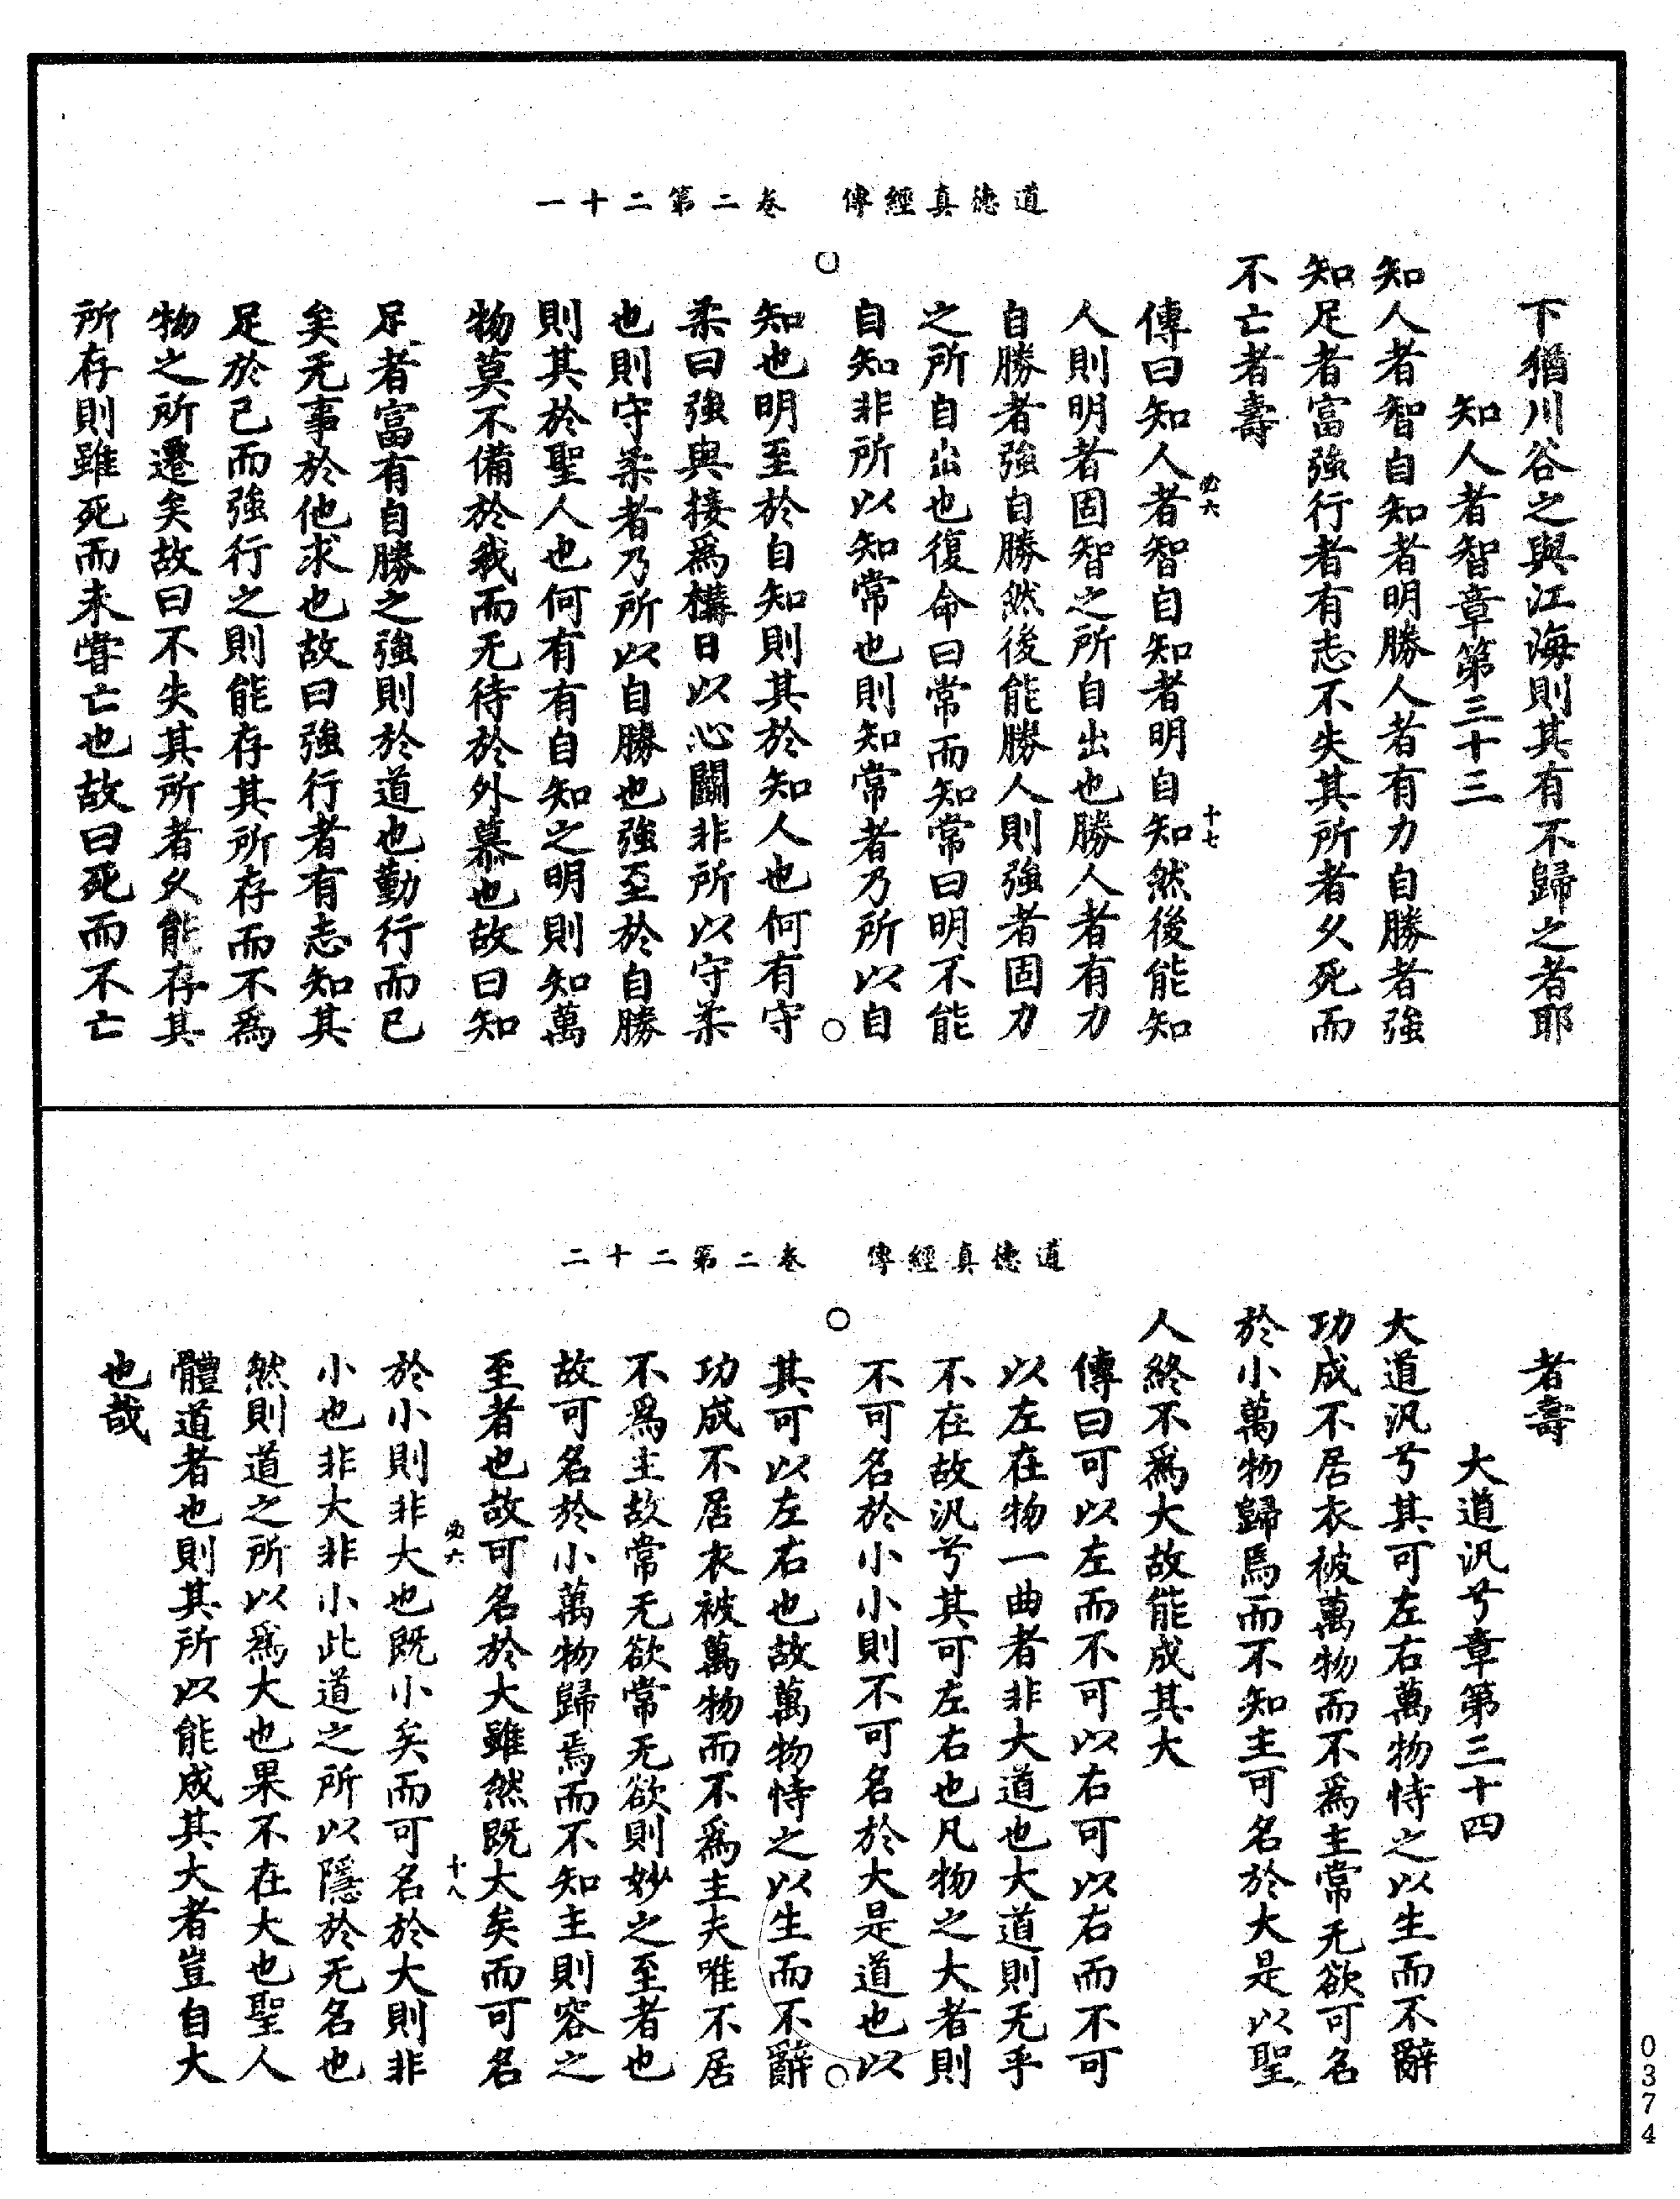 道德真經傳　卷二第二十一
下猶川谷之與江海則其有不歸之者耶
知人者智章第三十三
知人者智自知者明勝人者有力自勝者強
知足者富強行者有志不失其所者久死而
不亡者壽
必六
十七
傳曰知人者智自知者明自知然後能知
人則明者固智之所自出也勝人者有力
自勝者強自勝然後能勝人則強者固力
之所自出也復命曰常而知常曰明不能
自知非所以知常也則知常者乃所以自
知也明至於自知則其於知人也何有守
柔曰強與接為構日以心鬭非所以守柔
也則守柔者乃所以自勝也強至於自勝
則其於聖人也何有有自知之明則知萬
物莫不備於我而无待於外慕也故曰知
足者富有自勝之強則於道也勤行而已
矣无事於他求也故曰強行者有志知其
足於己而強行之則能存其所存而不為
物之所遷矣故曰不失其所者久能存其
所存則雖死而未嘗亡也故曰死而不亡
道德真經傳　卷二第二十二
者壽
大道汎兮章第三十四
大道汎兮其可左右萬物恃之以生而不辭
功成不居衣被萬物而不為主常无欲可名
於小萬物歸焉而不知主可名於大是以聖
人終不為大故能成其大
傳曰可以左而不可以右可以右而不可
以左在物一曲者非大道也大道則无乎
不在故汎兮其可左右也凡物之大者則
不可名於小小則不可名於大是道也以
其可以左右也故萬物恃之以生而不辭
功成不居衣被萬物而不為主夫唯不居
不為主故常无欲常无欲則妙之至者也
故可名於小萬物歸焉而不知主則容之
至者也故可名於大雖然既大矣而可名
必六
十八
於小則非大也既小矣而可名於大則非
小也非大非小此道之所以隱於无名也
然則道之所以為大也果不在大也聖人
體道者也則其所以能成其大者豈自大
也哉
0374